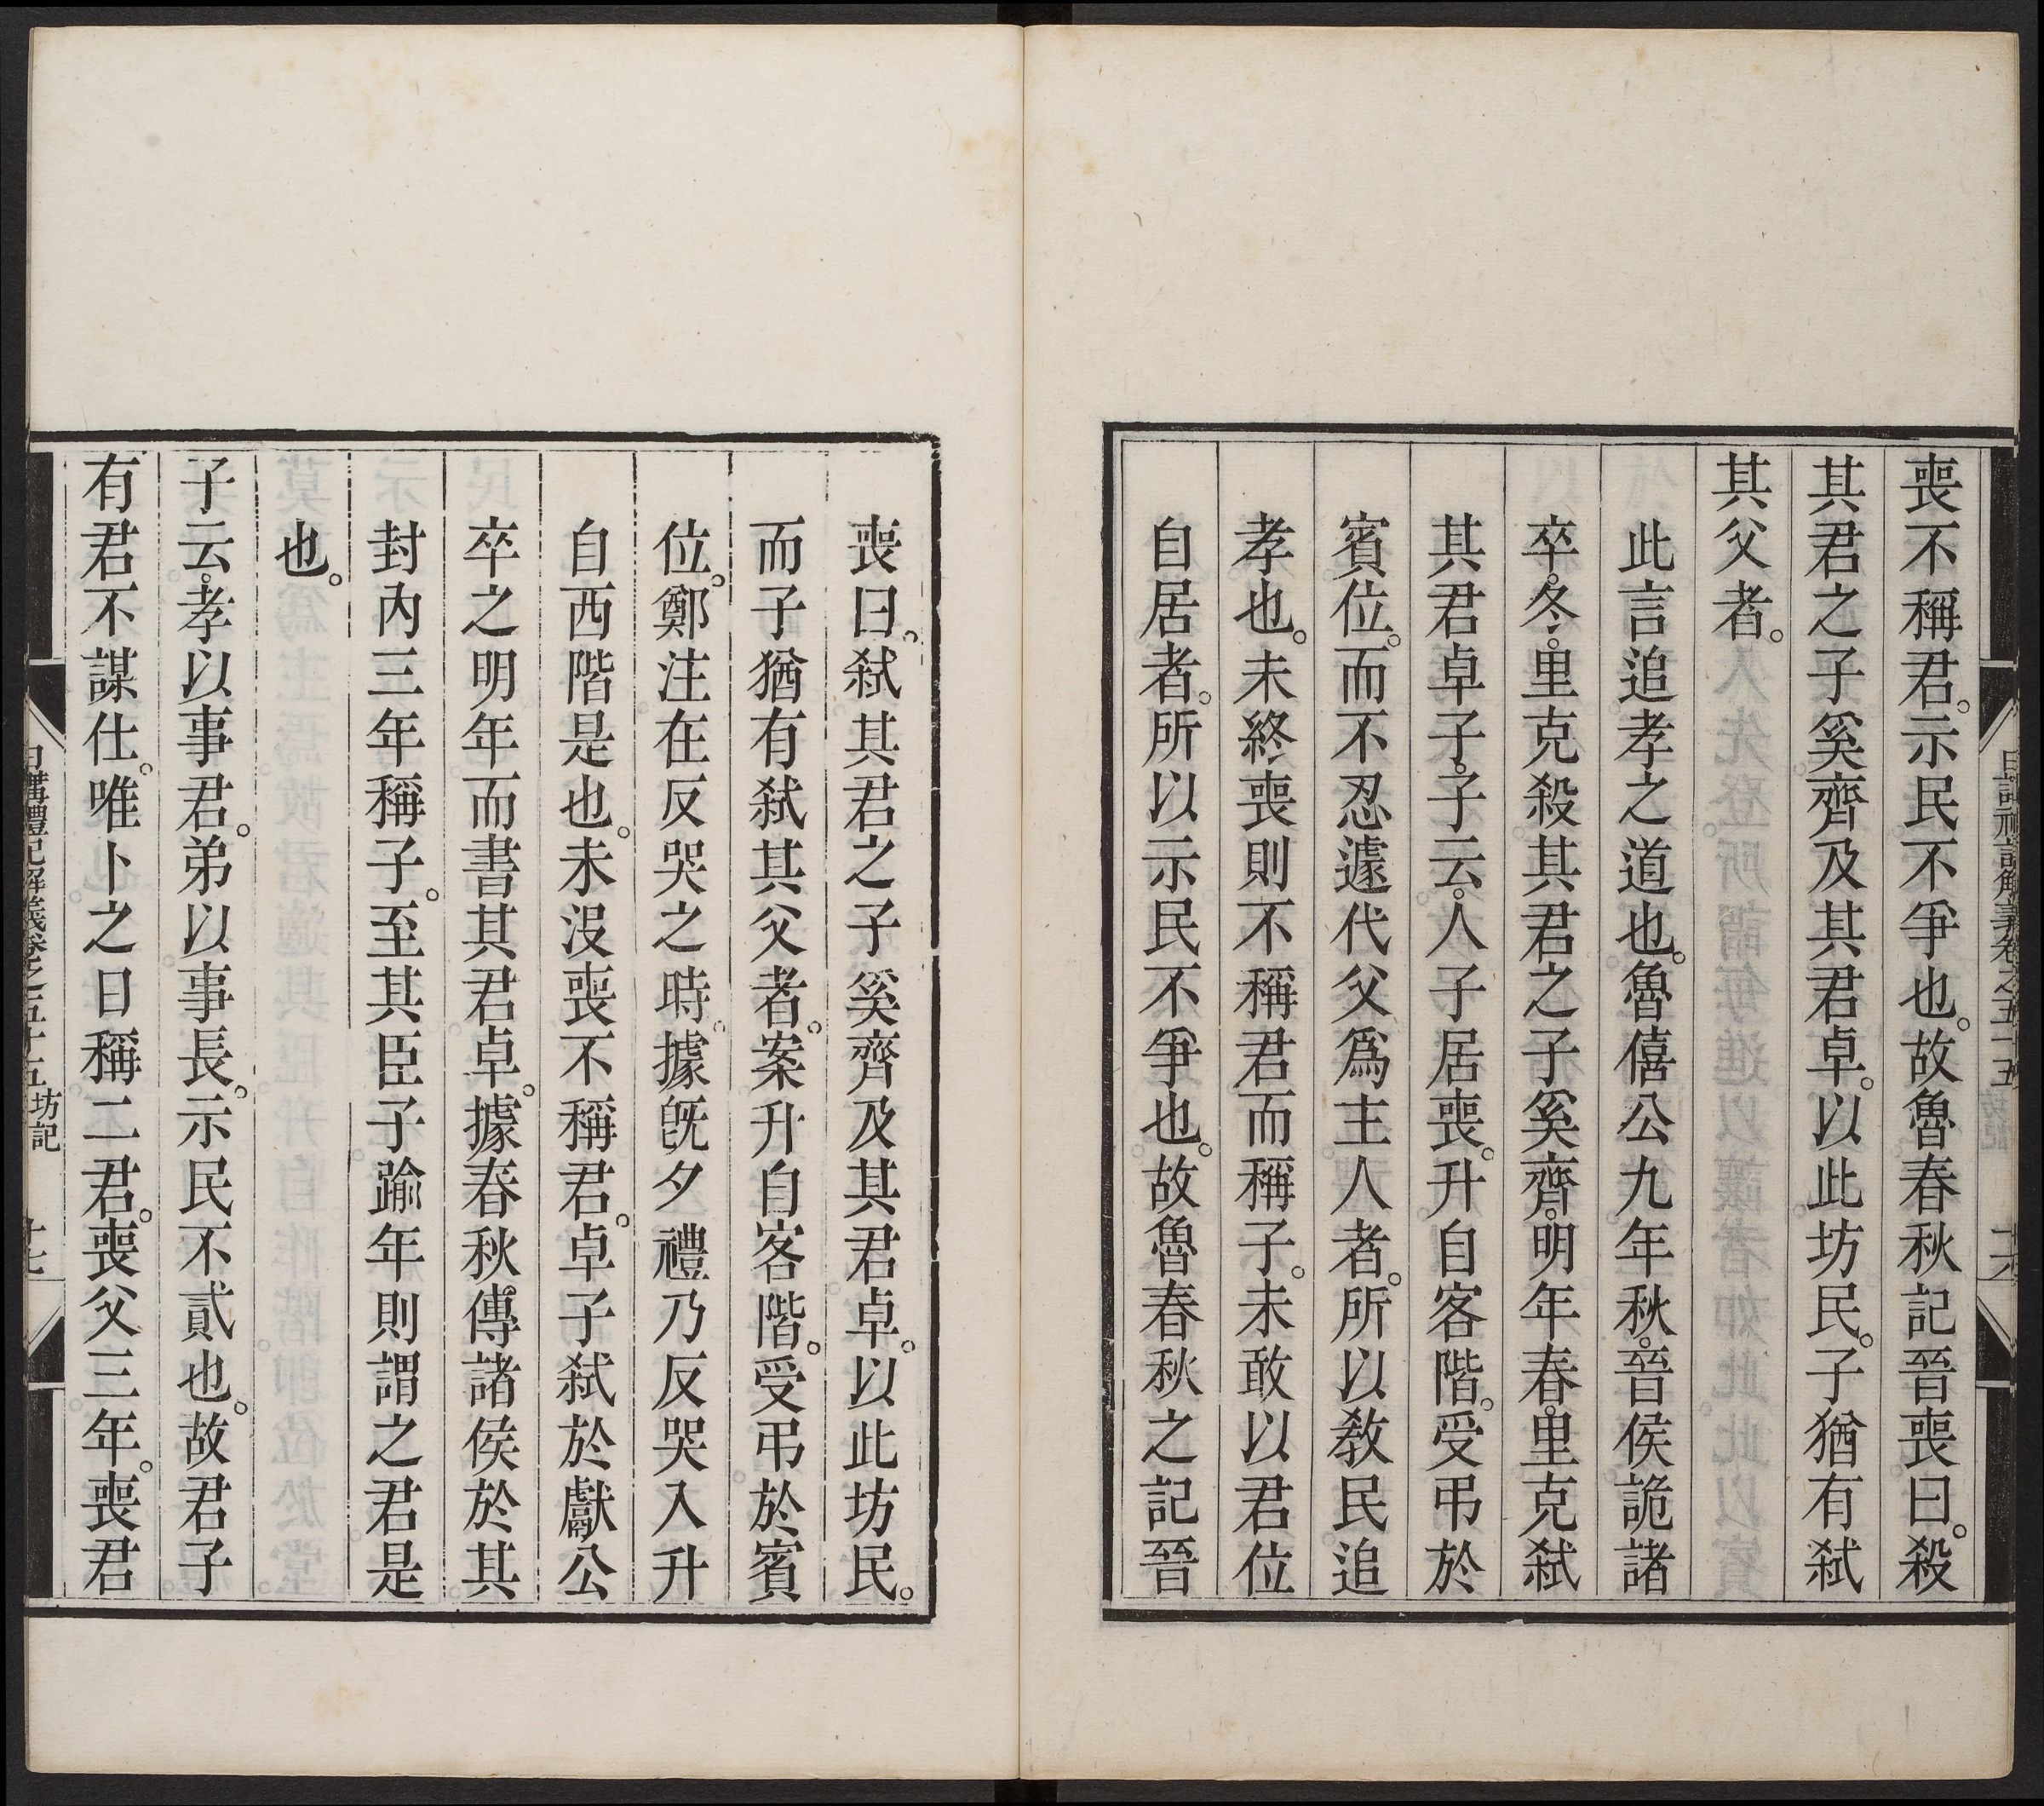 喪不稱君。示民不爭也。故魯春秋記晉喪曰。殺
其君之子奚齊及其君卓。以此坊民。子猶有弑
其父者。
此言追孝之道也。魯僖公九年秋。晉侯詭諸
卒。冬。里克殺其君之子奚齊。明年春。里克弑
其君卓子。子云。人子居喪。升自客階。受弔於
賓位。而不忍遽代父爲主人者。所以敎民追
孝也。未終喪則不稱君而稱子。未敢以君位
自居者。所以示民不爭也。故魯春秋之記晉
喪曰。弑其君之子奚齊及其君卓。以此坊民。
而子猶有弑其父者。案升自客階。受弔於賓
位。鄭注在反哭之時。據旣夕禮乃反哭入升
自西階是也。未沒喪不稱君。卓子弑於獻公
卒之明年而書其君卓。據春秋傳諸侯於其
封內三年稱子。至其臣子踰年則謂之君是
也。
子云。孝以事君。弟以事長。示民不貳也。故君子
有君不謀仕。唯卜之日稱二君。喪父三年。喪君
日講禮記解義卷之五十五 坊記 十七